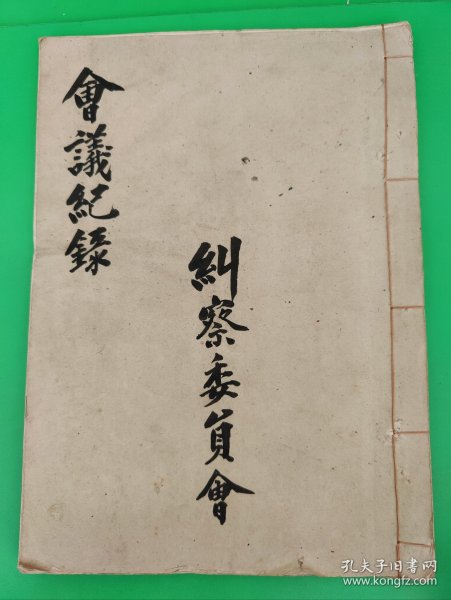 會議紀錄
糾察委員會
孔夫子旧书网
www.kongfz.com